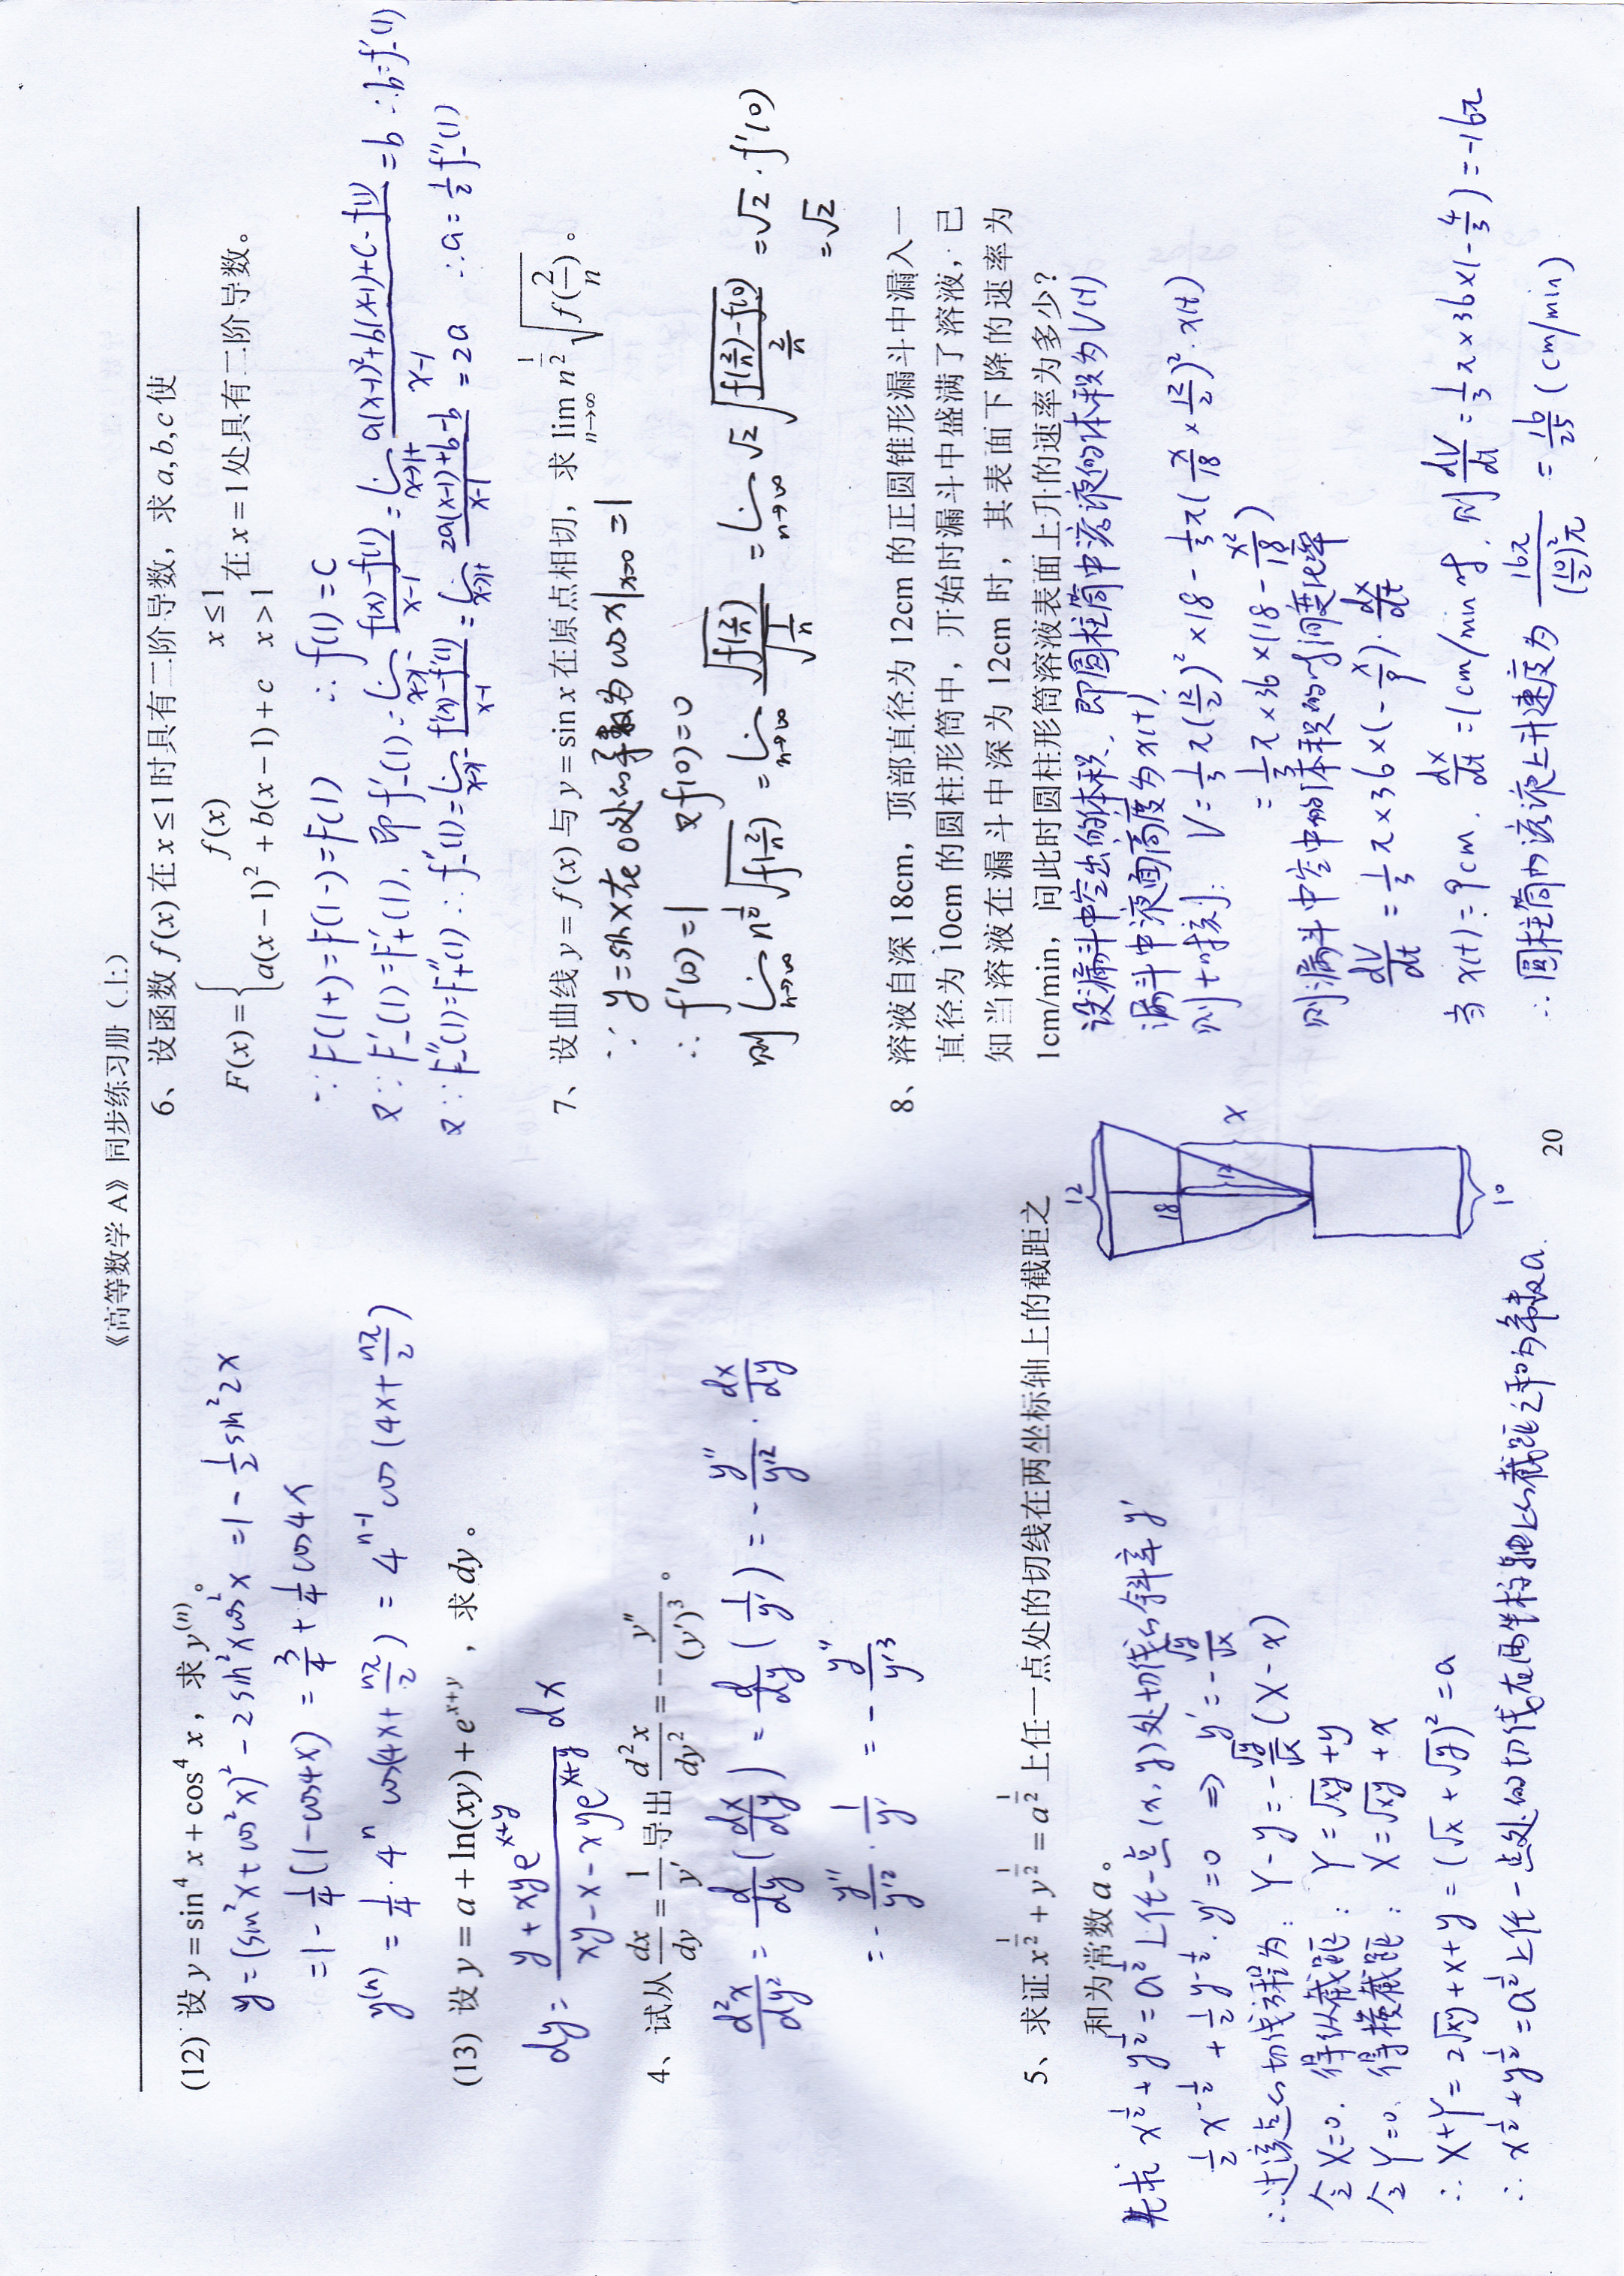 《高等数学 A》同步练习册（上）
(12) 设 y = sin⁴ x + cos⁴ x，求 y⁽ⁿ⁾。
y = (sin²x + cos²x)² - 2sin²x cos²x = 1 - 1/2 sin²2x
= 1 - 1/4(1 - cos4x) = 3/4 + 1/4 cos4x
y⁽ⁿ⁾ = 1/4 · 4ⁿ cos(4x + nπ/2) = 4ⁿ⁻¹ cos(4x + nπ/2)
(13) 设 y = a + ln(xy) + e^(x+y)，求 dy。
dy = (y + xy e^(x+y))/(xy - x - xy e^(x+y)) dx
4、试从 dx/dy = 1/y′ 导出 d²x/dy² = - y″/(y′)³。
d²x/dy² = d/dy(dx/dy) = d/dy(1/y′) = - y″/y′² · dx/dy
= - y″/y′² · 1/y′ = - y″/y′³
5、求证 x^(1/2) + y^(1/2) = a^(1/2) 上任一点处的切线在两坐标轴上的截距之
和为常数 a。
先求 x^(1/2) + y^(1/2) = a^(1/2) 上任一点 (x, y) 处切线的斜率 y′
1/2 x^(-1/2) + 1/2 y^(-1/2) · y′ = 0 ⇒ y′ = - √y/√x
∴过该点的切线方程为: Y - y = - √y/√x (X - x)
令 X=0. 得纵截距: Y = √xy + y
令 Y=0. 得横截距: X = √xy + x
∴ X+Y = 2√xy + x + y = (√x + √y)² = a
∴ x^(1/2) + y^(1/2) = a^(1/2) 上任一点处的切线在两坐标轴上的截距之和为常数 a.
6、设函数 f(x) 在 x ≤ 1 时具有二阶导数，求 a,b,c 使
F(x) = { f(x) x ≤ 1
a(x-1)² + b(x-1) + c x > 1 在 x = 1 处具有二阶导数。
∵ F(1+) = F(1-) = F(1) ∴ f(1) = C
又∵ F₋′(1) = F₊′(1), 即 f₋′(1) = lim x→1⁻ (f(x)-f(1))/(x-1) = lim x→1+ (a(x-1)²+b(x-1)+c-f(1))/(x-1) = b ∴ b = f₋′(1)
又∵ F₋″(1) = F₊″(1) ∴ f₋″(1) = lim x→1⁻ (f′(x)-f′(1))/(x-1) = lim x→1+ (2a(x-1)+b-b)/(x-1) = 2a ∴ a = 1/2 f₋″(1)
7、设曲线 y = f(x) 与 y = sin x 在原点相切，求 lim n→∞ n^(1/2) √(f(2/n))。
∵ y = sin x 在 0 处的导数为 cos x|x=0 = 1
∴ f′(0) = 1 又 f(0) = 0
则 lim n→∞ n^(1/2) √(f(2/n)) = lim n→∞ √(f(2/n))/√(1/n) = lim n→∞ √2 √((f(2/n)-f(0))/(2/n)) = √2 · f′(0)
= √2
8、溶液自深 18cm，顶部直径为 12cm 的正圆锥形漏斗中漏入一
直径为 10cm 的圆柱形筒中，开始时漏斗中盛满了溶液，已
知当溶液在漏斗中深为 12cm 时，其表面下降的速率为
1cm/min，问此时圆柱形筒溶液表面上升的速率为多少？
设漏斗中空出的体积, 即圆柱筒中溶液的体积为 V(t)
漏斗中液面高度为 x(t)
则 t 时刻: V = 1/3 π(12/2)² × 18 - 1/3 π(x/18 × 12/2)² · x(t)
= 1/3 π × 36 × (18 - x²/18)
则漏斗中空中的体积的时间变化率
dV/dt = 1/3 π × 36 × (- x/9) · dx/dt
当 x(t) = 9cm. dx/dt = 1cm/min 时, 则 dV/dt = 1/3 π × 36 × (- 4/3) = -16π
∴ 圆柱筒内溶液上升速度为 16π/((10/2)²π) = 16/25 (cm/min)
12
18
12
x
10
20